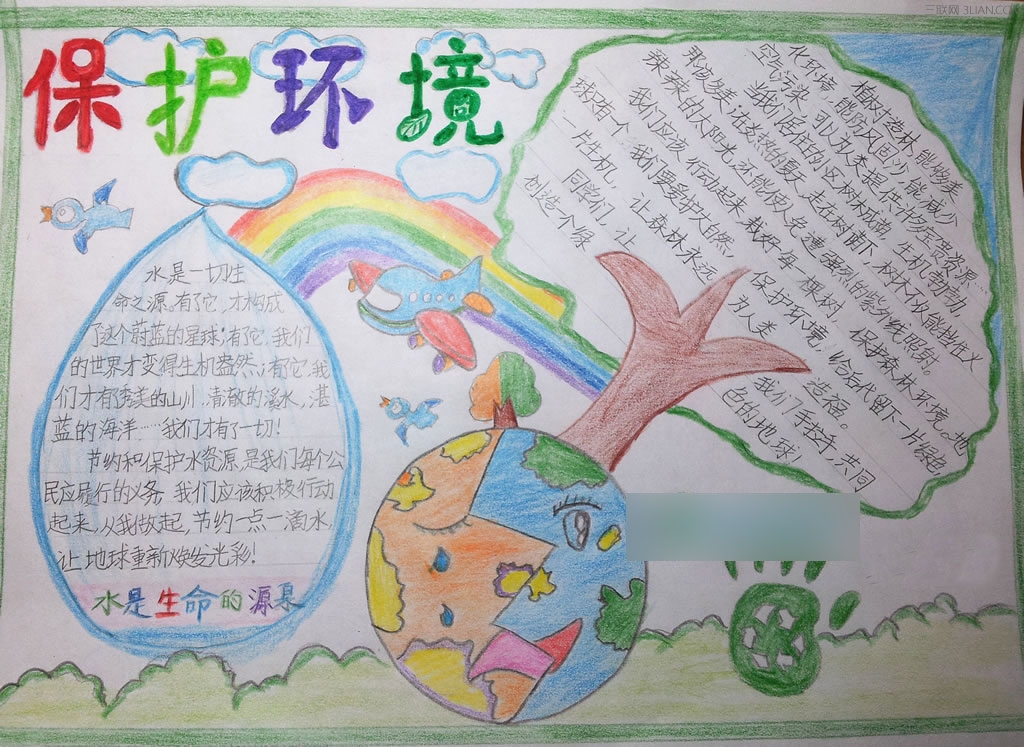 三联网 3LIAN.CO
保护环境
水是一切生
命之源。有了它,才构成
了这个蔚蓝的星球;有了它,我们
的世界才变得生机盎然;有了它,我
们才有了秀美的山川,清澈的溪水,湛
蓝的海洋……我们才有了一切!
节约和保护水资源,是我们每个公
民应履行的义务,我们应该积极行动
起来,从我做起,节约一点一滴水,
让地球重新焕发光彩!
水是生命的源泉
植树造林,能够美
化环境,能防风固沙,能减少
空气污染,可以为人类提供许多宝贵资源。
当我们居住的小区树林成荫,生机勃勃,
那该多美;在炎热的夏天,走在树荫下,树木不仅能挡住火
辣辣的太阳光,还能使人免遭强烈的紫外线照射。
我们应该行动起来,栽好每一棵树,保护森林环境。地
球只有一个,我们要爱护大自然,保护环境,给后代留下一片绿色
一片生机,让森林永远为人类造福。
同学们,让我们手拉手,共同
创造一个绿色的地球!